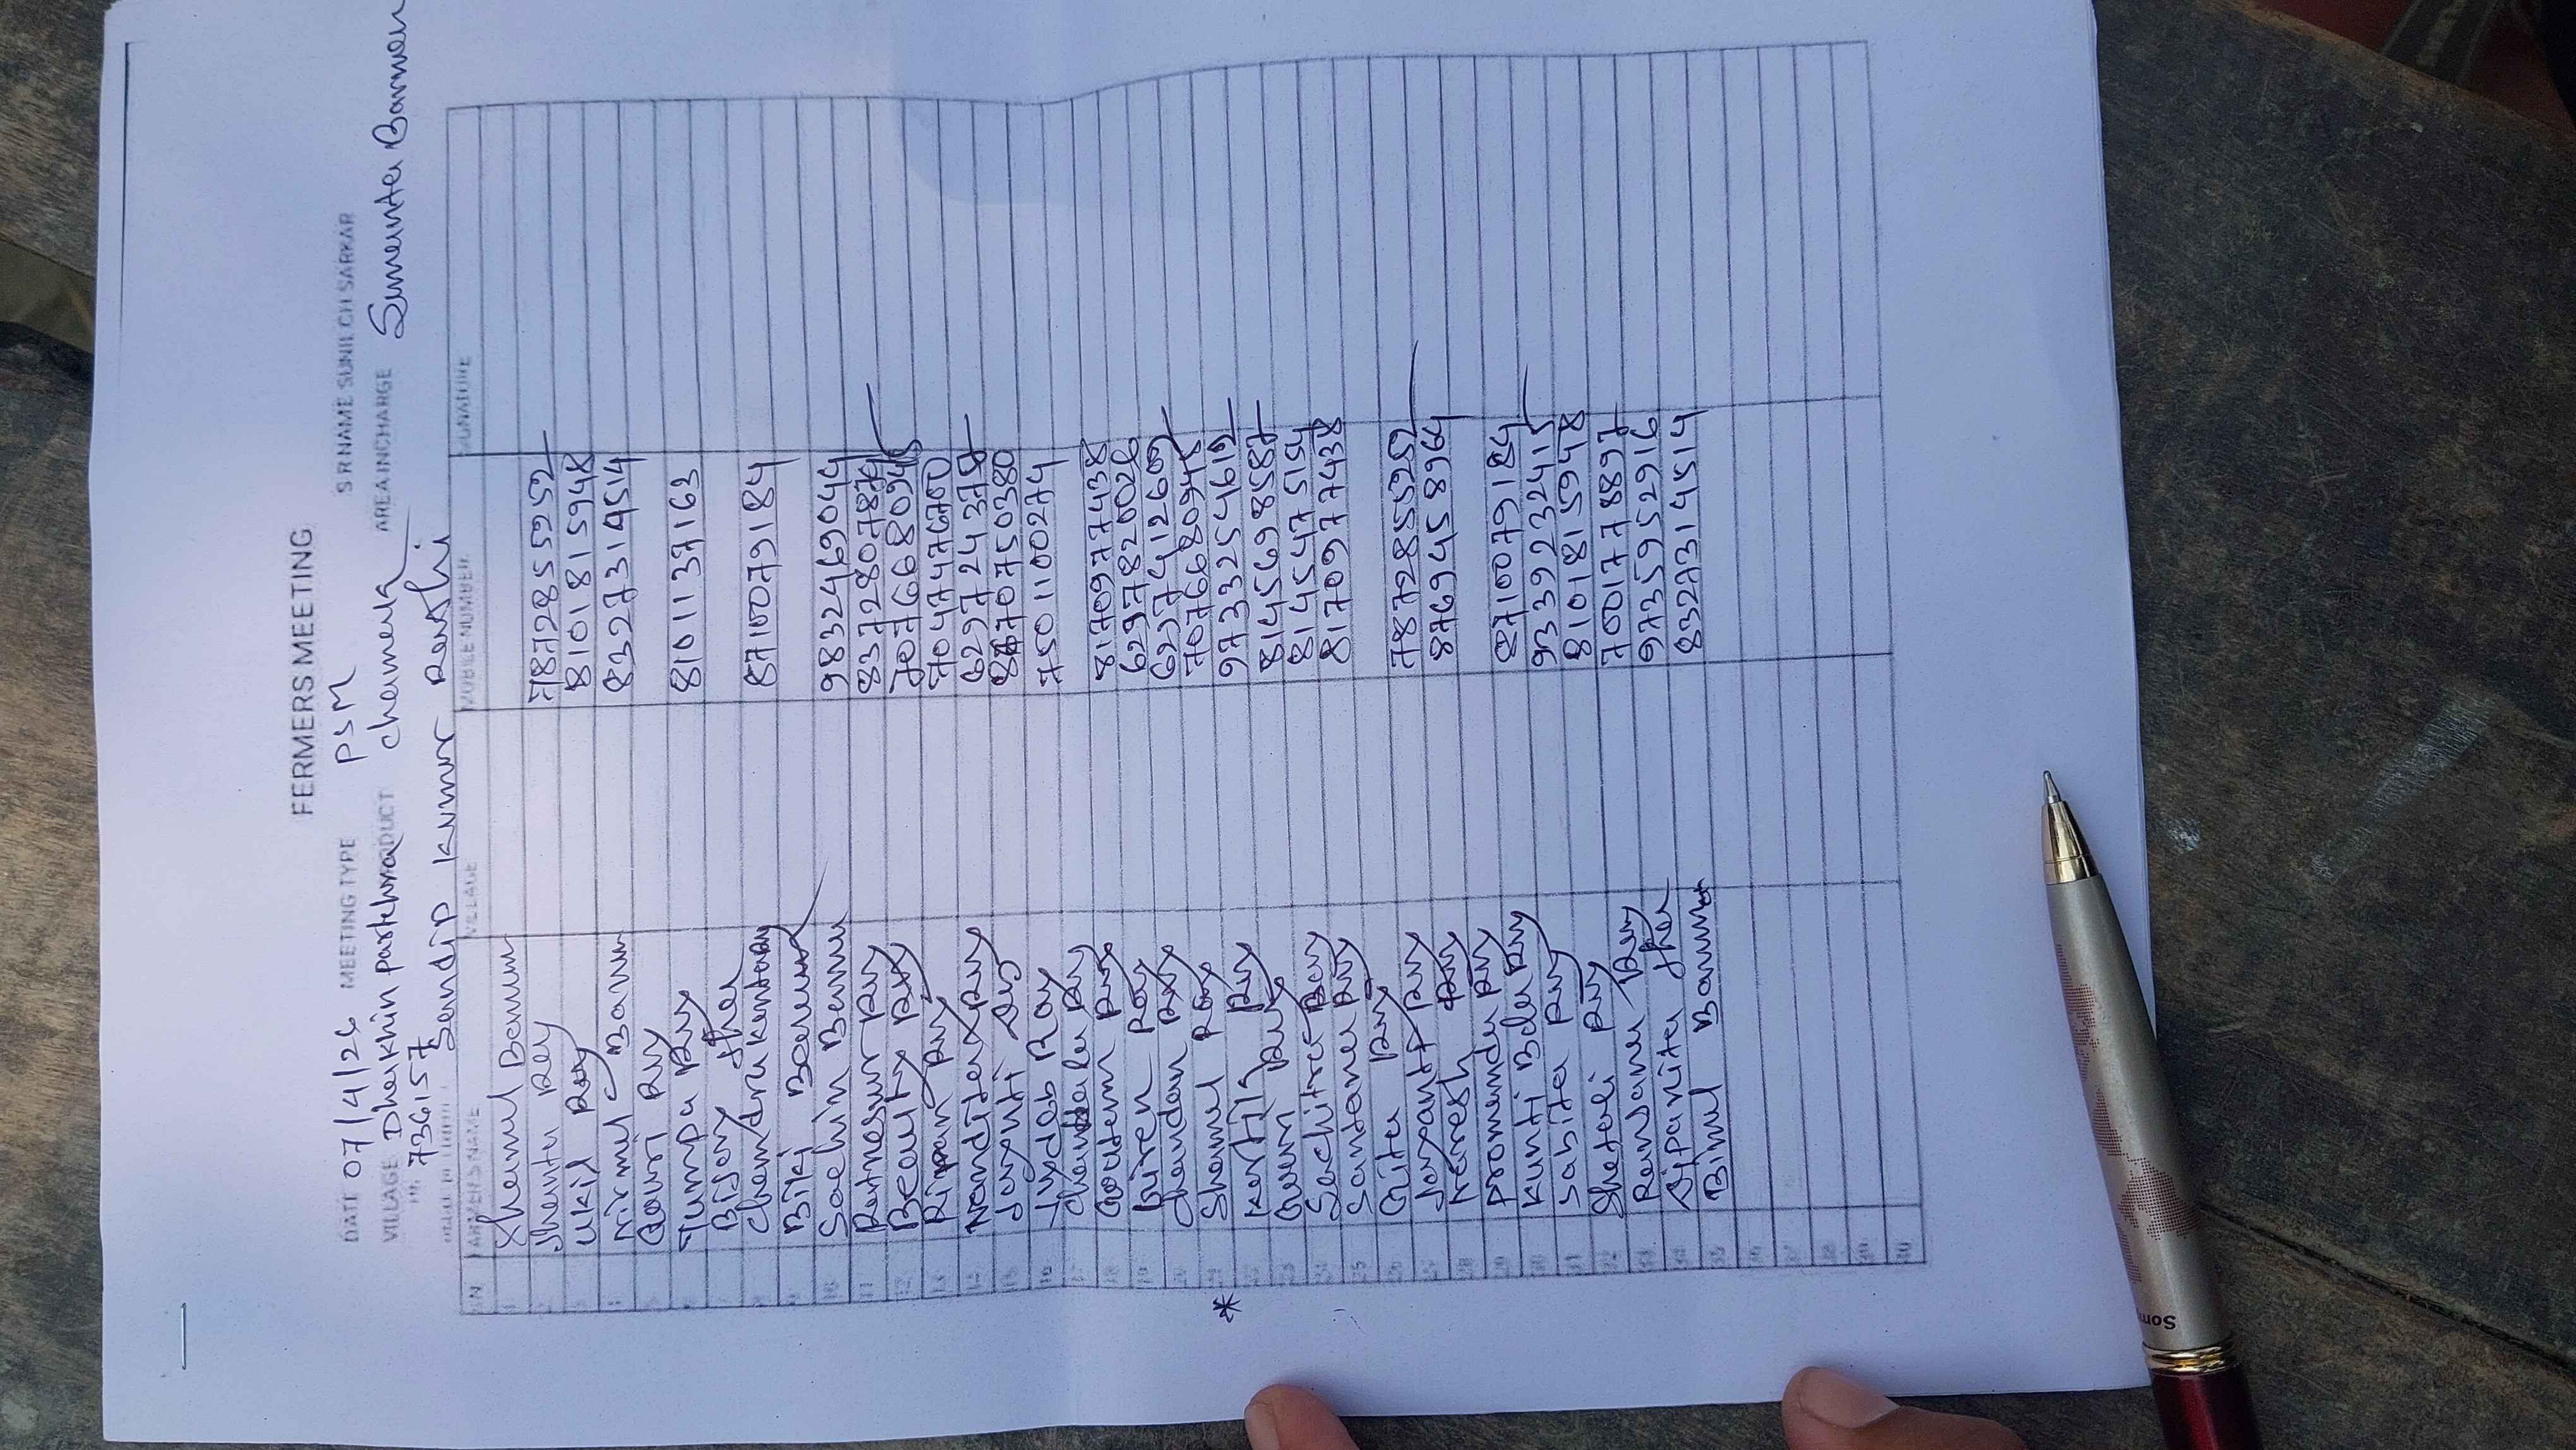 FERMERS MEETING
DATE 07/4/26 MEETING TYPE PSM S R NAME SUNIL CH SARKAR
VILLAGE Dhakhin parokhra PRODUCT chamek AREA INCHARGE Sumanta Barman
736157 Sandip Kumar Rashi
SN FARMERS NAME VILLAGE MOBILE NUMBER SIGNATURE
1 Shamul Barman
2 Jhantu Roy 7872855252
3 Ukil Roy 8101815948
4 Nirmul Barman 8327314514
5 Gouri Roy
6 Tumpa Roy 8101137163
7 Bijoy Jha
8 Chandra kanta Roy 8710079184
9 Biki Barman
10 Sachin Barman 9832469044
11 Ratneswr Roy 8372807874
12 Beauty Roy 7076680948
13 Rimpan Roy 7047476700
14 Nandita Roy 6297243778
15 Jayanti Roy 8670750380
16 Jyudeb Roy 7501100274
17 Roy
18 Goutam Roy 8170977438
19 Biren Roy 6297820026
20 Chandan Roy 6297412609
21 Shamul Roy 7076680948
22 Kartik Roy 9733254619
23 Roy 8145698587
24 Sachitra Roy 8145475154
25 Santana Roy 8170977438
26 Gita Roy
27 Jayanti Roy 7872855252
28 Naresh Roy 8769458964
29 Promananda Roy
30 Kunti Bala Roy 8710079184
31 Sabita Roy 9339232415
32 Shefali Roy 8101815948
33 Ranjana Roy 7001778897
34 Dipanita Jha 9735952916
35 Bimul Barman 8327314514
36
37
38
39
40